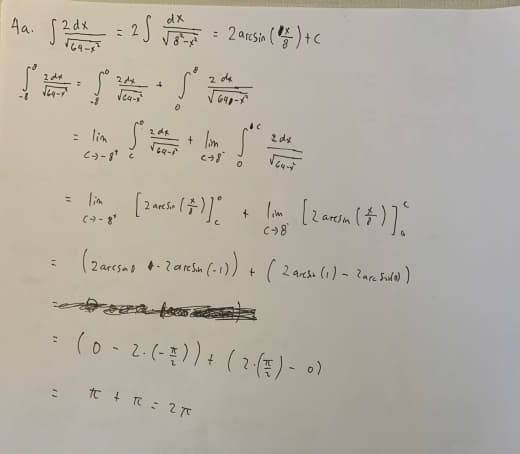 4a. ∫ 2dx/√(64-x²) = 2∫ dx/√(8²-x²) = 2arcsin(x/8)+c
∫₋₈⁸ 2dx/√(64-x²) = ∫₋₈⁰ 2dx/√(64-x²) + ∫₀⁸ 2dx/√(64-x²)
= lim c→-8⁺ ∫_c⁰ 2dx/√(64-x²) + lim c→8⁻ ∫₀^c 2dx/√(64-x²)
= lim c→-8⁺ [2arcsin(x/8)]_c⁰ + lim c→8⁻ [2arcsin(x/8)]₀^c
= (2arcsin0 - 2arcsin(-1)) + (2arcsin(1) - 2arcsin(0))
= (0 - 2·(-π/2)) + (2·(π/2) - 0)
= π + π = 2π